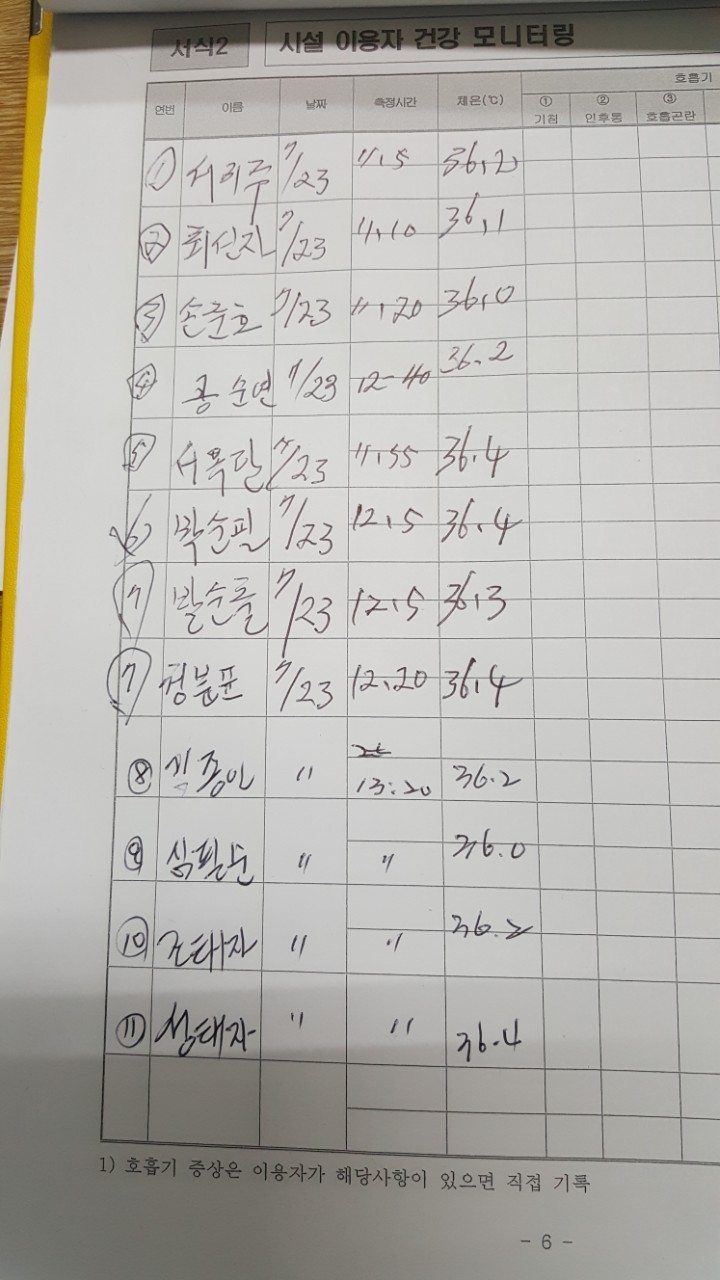 서식2 시설 이용자 건강 모니터링
연번 이름 날짜 측정시간 체온(℃) 호흡기
① 기침 ② 인후통 ③ 호흡곤란
① 서리주 7/23 11.5 36.2
② 최신자 7/23 11.10 36.1
③ 손준호 7/23 11.20 36.0
④ 공순연 7/23 12-40 36.2
⑤ 7/23 11.55 36.4
6 박순필 7/23 12.5 36.4
⑦ 7/23 12.5 36.3
⑦ 정분표 7/23 12.20 36.4
⑧ 〃 13:20 36.2
⑨ 심필순 〃 〃 36.0
⑩ 조태자 〃 〃 36.2
⑪ 성태자 〃 〃 36.4
1) 호흡기 증상은 이용자가 해당사항이 있으면 직접 기록
- 6 -